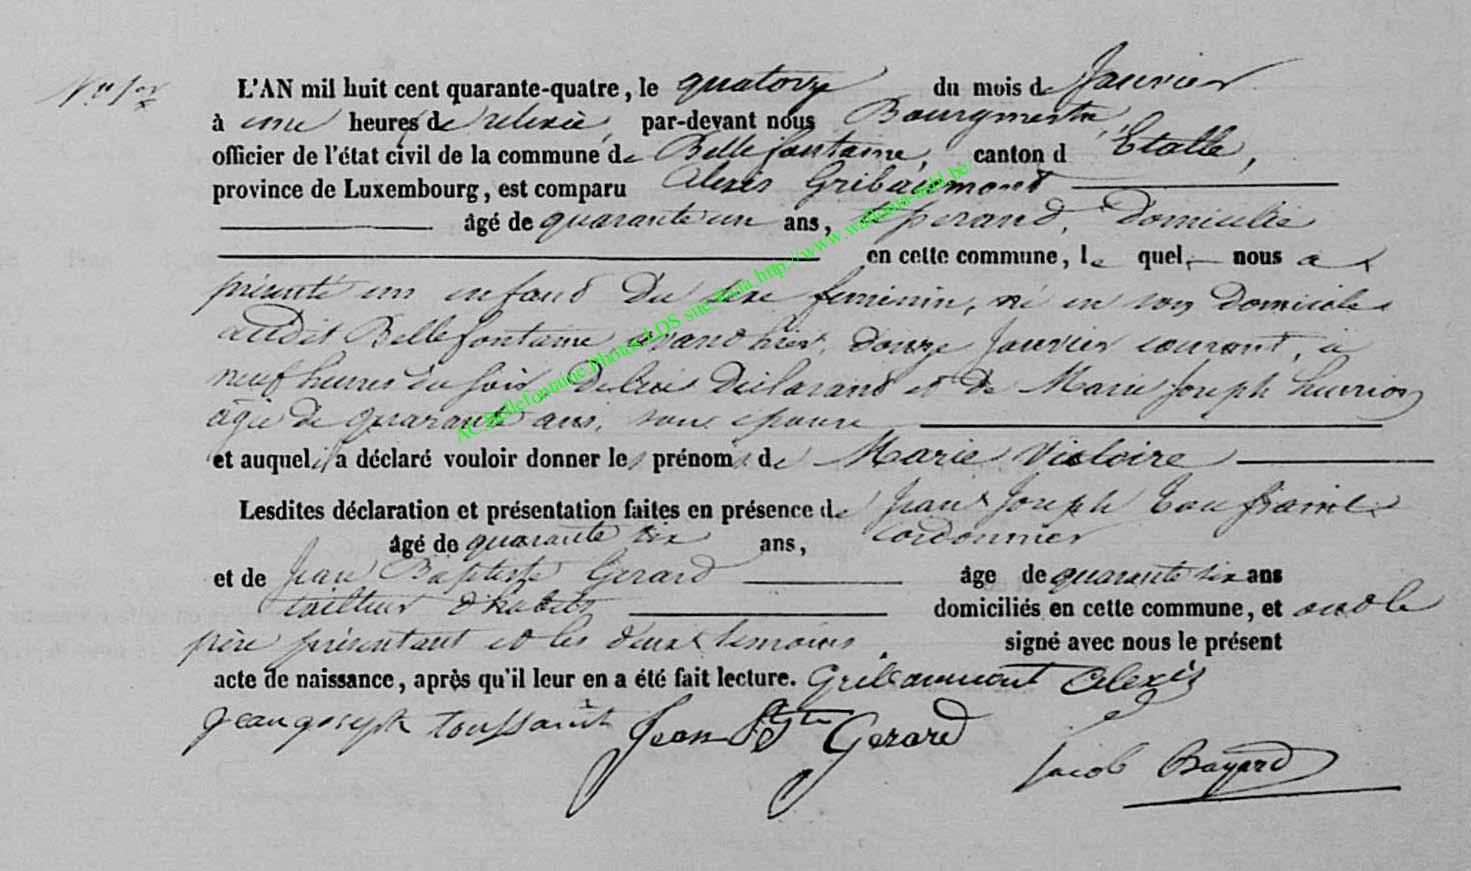 N° 1er
L'AN mil huit cent quarante-quatre, le quatorze du mois de Janvier
à une heures de relevée, par-devant nous Bourgmestre,
officier de l'état civil de la commune de Bellefontaine, canton d'Etalle,
province de Luxembourg, est comparu Alexis Gribaumont
âgé de quarante un ans, domicilié
en cette commune, le quel nous a
présenté un enfant du sexe féminin, né en son domicile
audit Bellefontaine avant hier, douze Janvier courant, à
neuf heures du soir, De lui déclarant et de Marie Joseph
âgée de quarante ans, son épouse
et auquel il a déclaré vouloir donner les prénoms de Marie Victoire
Lesdites déclaration et présentation faites en présence de Jean Joseph Toussaint
âgé de quarante six ans, cordonnier
et de Jean Baptiste Gerard âge de quarante six ans
tailleur d'habits domiciliés en cette commune, et ont le
père présentant et les deux témoins signé avec nous le présent
acte de naissance, après qu'il leur en a été fait lecture. Gribaumont Alexis
Jean joseph toussaint Jean Bte Gerard
Jacob Bayard
AC.Bellefontaine.Photos LDS site @via http://www.wallonia-asbl.be/